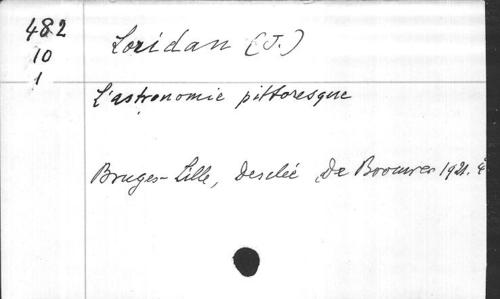 482
10
1
Loridan (J.)
L'astronomie pittoresque
Bruges-Lille, Desclée De Brouwer 1921. 4°